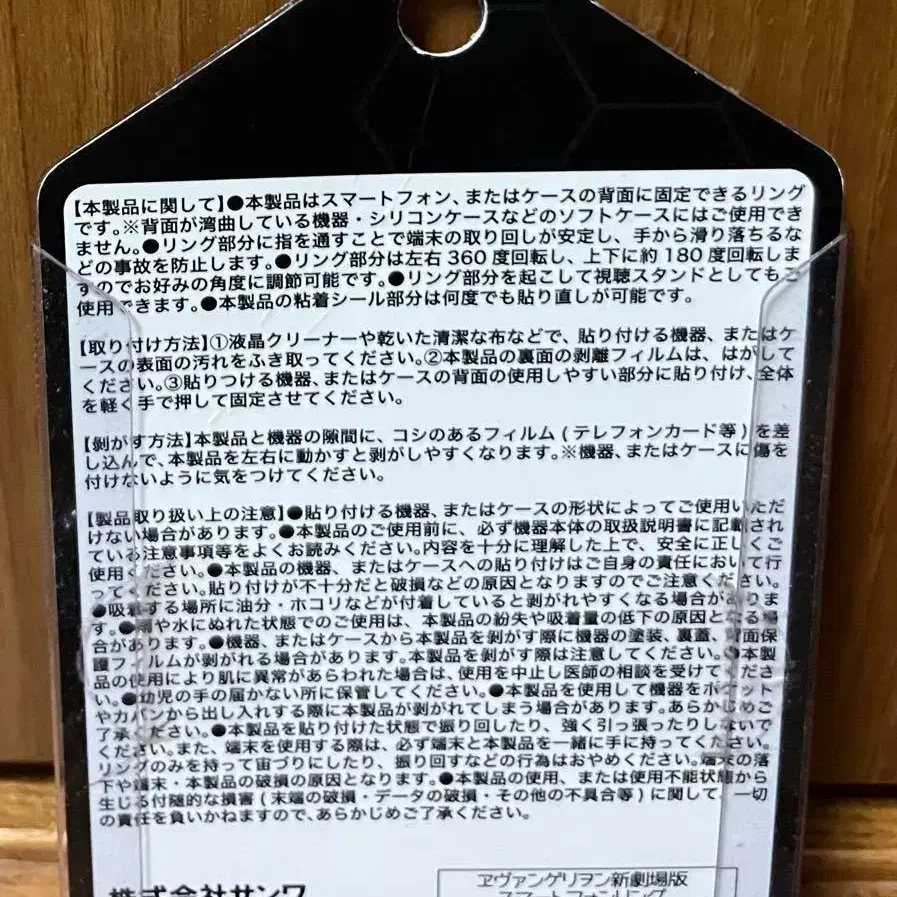 【本製品に関して】●本製品はスマートフォン、またはケースの背面に固定できるリング
です。※背面が湾曲している機器・シリコンケースなどのソフトケースにはご使用でき
ません。●リング部分に指を通すことで端末の取り回しが安定し、手から滑り落ちるな
どの事故を防止します。●リング部分は左右360度回転し、上下に約180度回転しま
すのでお好みの角度に調節可能です。●リング部分を起こして視聴スタンドとしてもご
使用できます。●本製品の粘着シール部分は何度でも貼り直しが可能です。
【取り付け方法】①液晶クリーナーや乾いた清潔な布などで、貼り付ける機器、またはケ
ースの表面の汚れをふき取ってください。②本製品の裏面の剥離フィルムは、はがして
ください。③貼りつける機器、またはケースの背面の使用しやすい部分に貼り付け、全体
を軽く手で押して固定させてください。
【剝がす方法】本製品と機器の隙間に、コシのあるフィルム(テレフォンカード等)を差
し込んで、本製品を左右に動かすと剥がしやすくなります。※機器、またはケースに傷を
付けないように気をつけてください。
【製品取り扱い上の注意】●貼り付ける機器、またはケースの形状によってご使用いただ
けない場合があります。●本製品のご使用前に、必ず機器本体の取扱説明書に記載され
ている注意事項等をよくお読みください。内容を十分に理解した上で、安全に正しくご
使用ください。●本製品の機器、またはケースへの貼り付けはご自身の責任において行
ってください。貼り付けが不十分だと破損などの原因となりますのでご注意ください。
●吸着する場所に油分・ホコリなどが付着していると剥がれやすくなる場合がありま
す。●雨や水にぬれた状態でのご使用は、本製品の紛失や吸着量の低下の原因となる場
合があります。●機器、またはケースから本製品を剥がす際に機器の塗装、裏蓋、背面保
護フィルムが剥がれる場合があります。本製品を剥がす際は注意してください。●本製
品の使用により肌に異常があらわれた場合は、使用を中止し医師の相談を受けてくださ
い。●幼児の手の届かない所に保管してください。●本製品を使用して機器をポケット
やカバンから出し入れする際に本製品が剥がれてしまう場合があります。あらかじめご
了承ください。●本製品を貼り付けた状態で振り回したり、強く引っ張ったりしないで
ください。また、端末を使用する際は、必ず端末と本製品を一緒に手に持ってください。
リングのみを持って宙づりにしたり、振り回すなどの行為はおやめください。端末の落
下や端末・本製品の破損の原因となります。●本製品の使用、または使用不能状態から
生じる付随的な損害(末端の破損・データの破損・その他の不具合等)に関して、一切
の責任を負いかねますので、あらかじめご了承ください。
株式会社サンワ
ヱヴァンゲリヲン新劇場版
スマートフォンリング